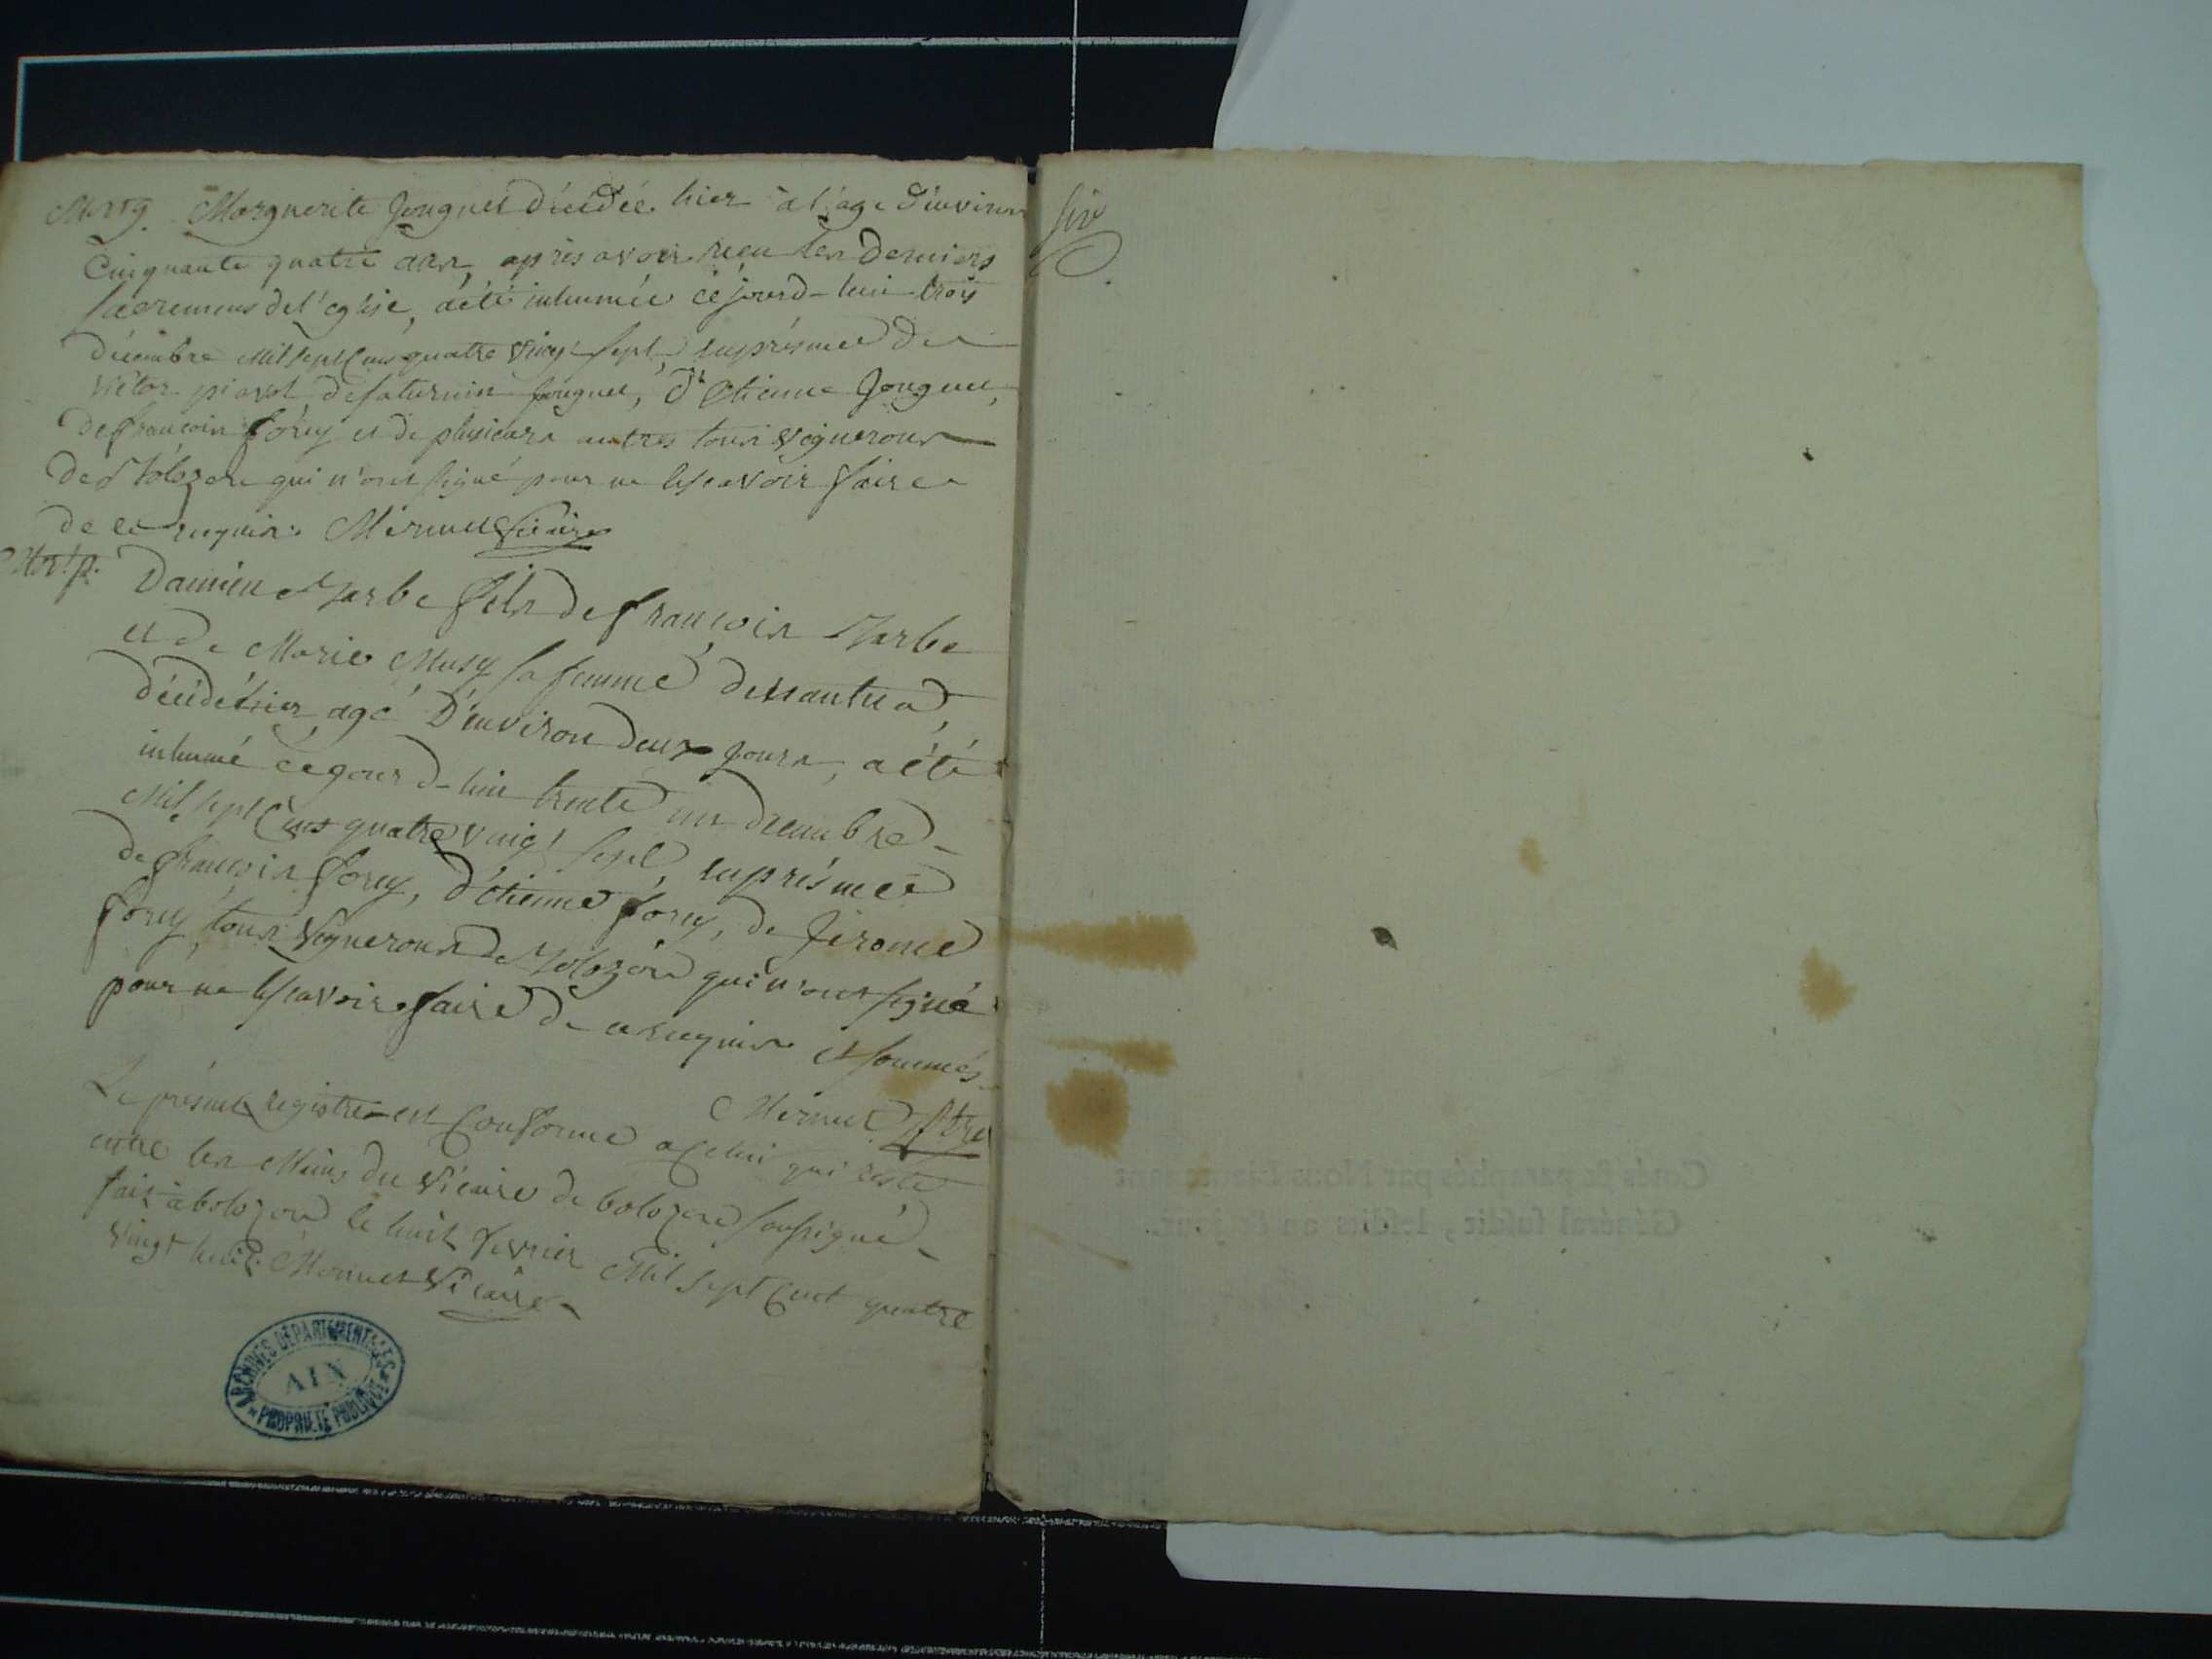 Mort g. Marguerite Jouguet décédée hier à l'age d'environ
Cinquante quatre ans, après avoir reçu les derniers
sacremens de l'église, a été inhumée ce jourd-hui trois
décembre Mil sept Cens quatre vingt sept, en présence de
victor piavot de saturnin jouguet, d'Etienne Jouguet,
de françois forey et de plusieurs autres tous vignerons
de Bolozon qui n'ont signé pour ne le sçavoir faire
de ce requis. Mermet vicaire
Mort p. Damien Barbe fils de françois Barbe
et de Marie Musy sa femme de nantua,
décédé hier, agé d'environ deux jours, a été
inhumé ce jour d-hui trente un décembre
Mil sept Cens quatre vingt sept, en présence
de françois forey, d'étienne forey, de Jérome
forey tous vignerons de Bolozon qui n'ont signé
pour ne le sçavoir faire de ce requis et sommés.
Mermet ptre
Le présent registre est Conforme a Celui qui reste
entre les Mains du vicaire de bolozon soussigné
fait à bolozon le huit fevrier Mil sept Cent quatre
vingt huit. Mermet vicaire
ARCHIVES DÉPARTEMENTALES
AIN
PROPRIÉTÉ PUBLIQUE
six
Cotés & paraphés par Nous Lieutenant
Général susdit, lesdits an & jour.